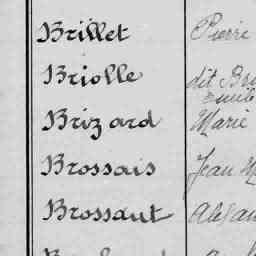 Brillet Pierre
Briolle dit Bri
Brizard Marie
Brossais Jean M
Brossaut Alexan